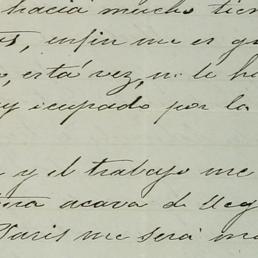 hacia mucho tiem
, enfin me es gr
, está vez, ni le ha
y icupado por la
y el trabajo me
acava de lleg
Paris me será ma